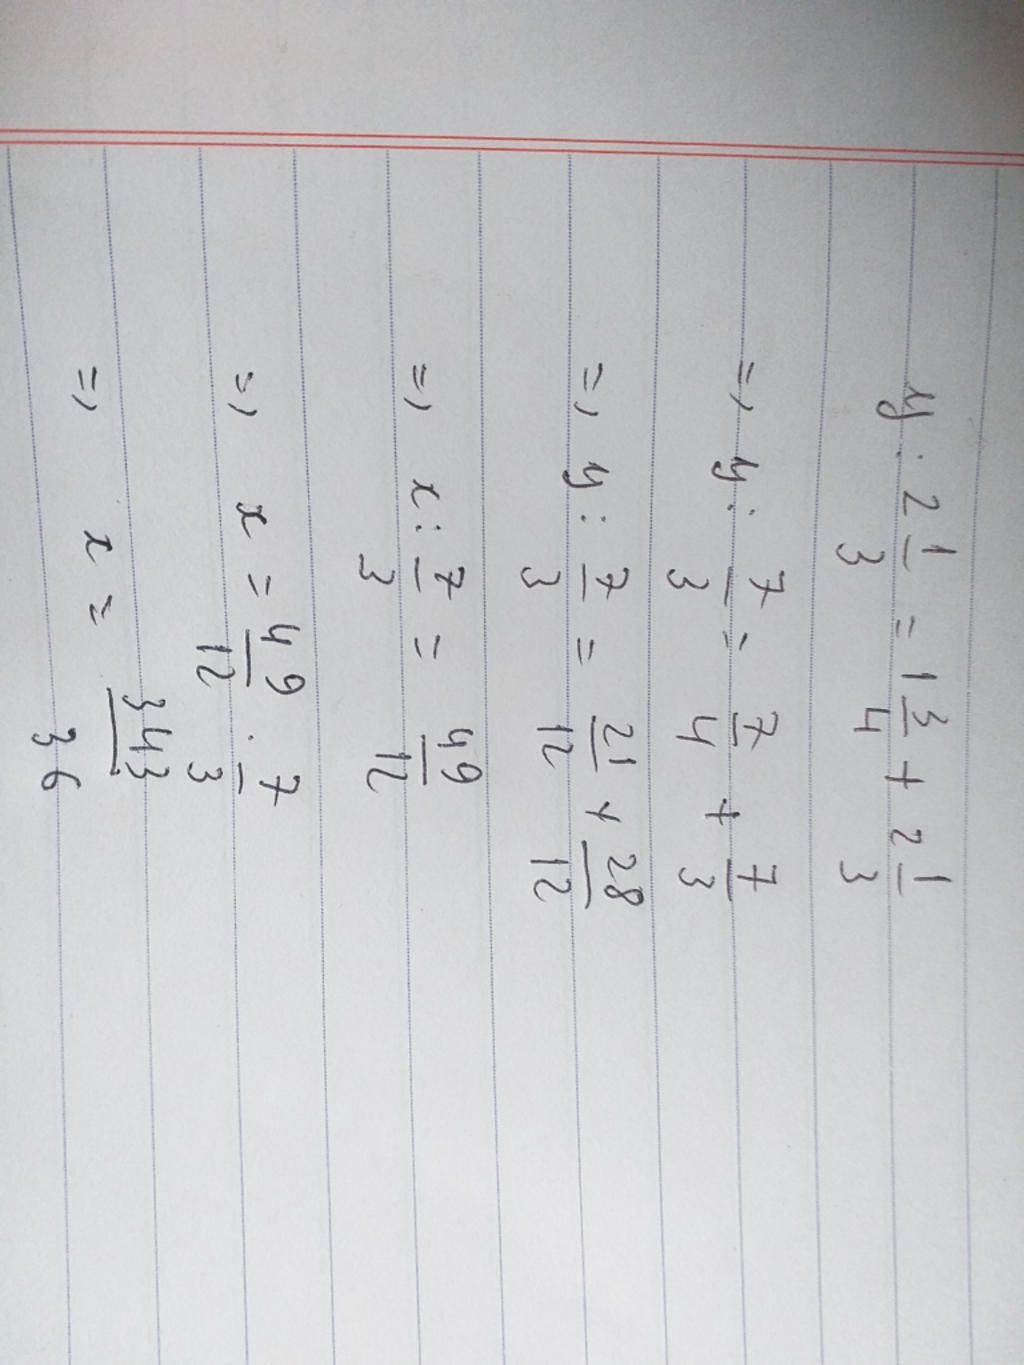 y : 2 1/3 = 1 3/4 + 2 1/3
=> y : 7/3 = 7/4 + 7/3
=> y : 7/3 = 21/12 + 28/12
=> x : 7/3 = 49/12
=> x = 49/12 . 7/3
=> x = 343/36